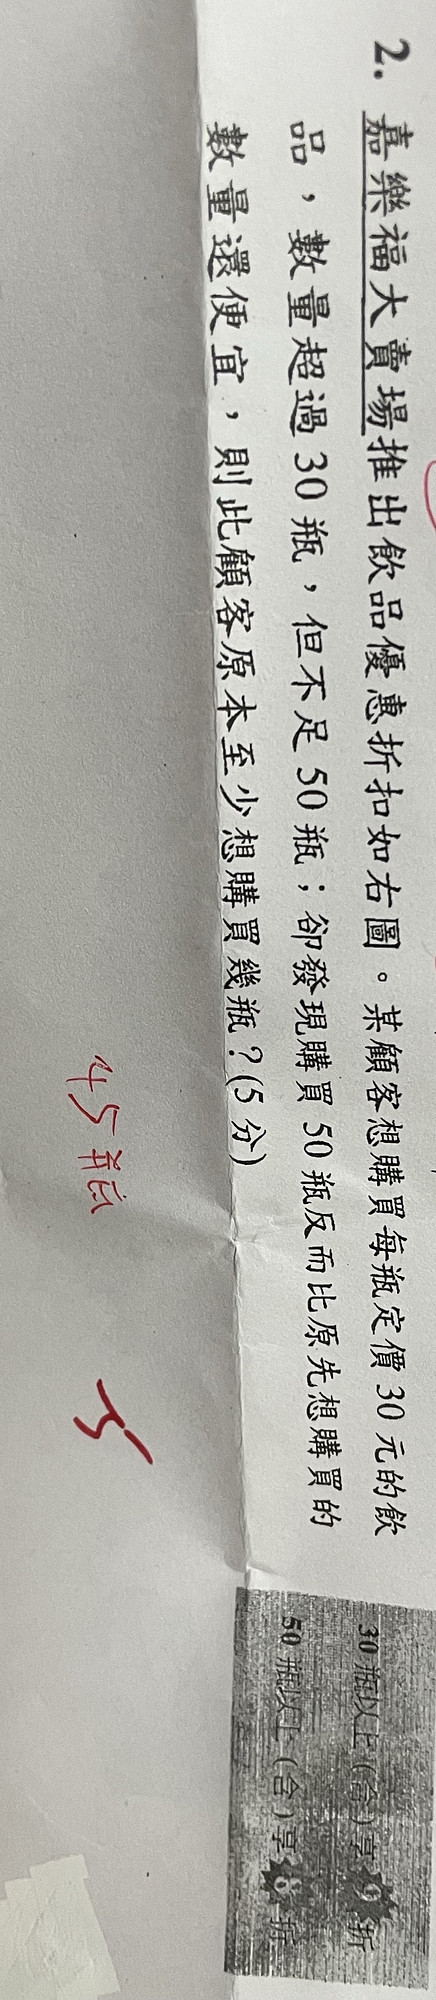 2. 嘉樂福大賣場推出飲品優惠折扣如右圖。某顧客想購買每瓶定價30元的飲
品，數量超過30瓶，但不足50瓶；卻發現購買50瓶反而比原先想購買的
數量還便宜，則此顧客原本至少想購買幾瓶？(5分)
30瓶以上(含)享9折
50瓶以上(含)享8折
45瓶
5